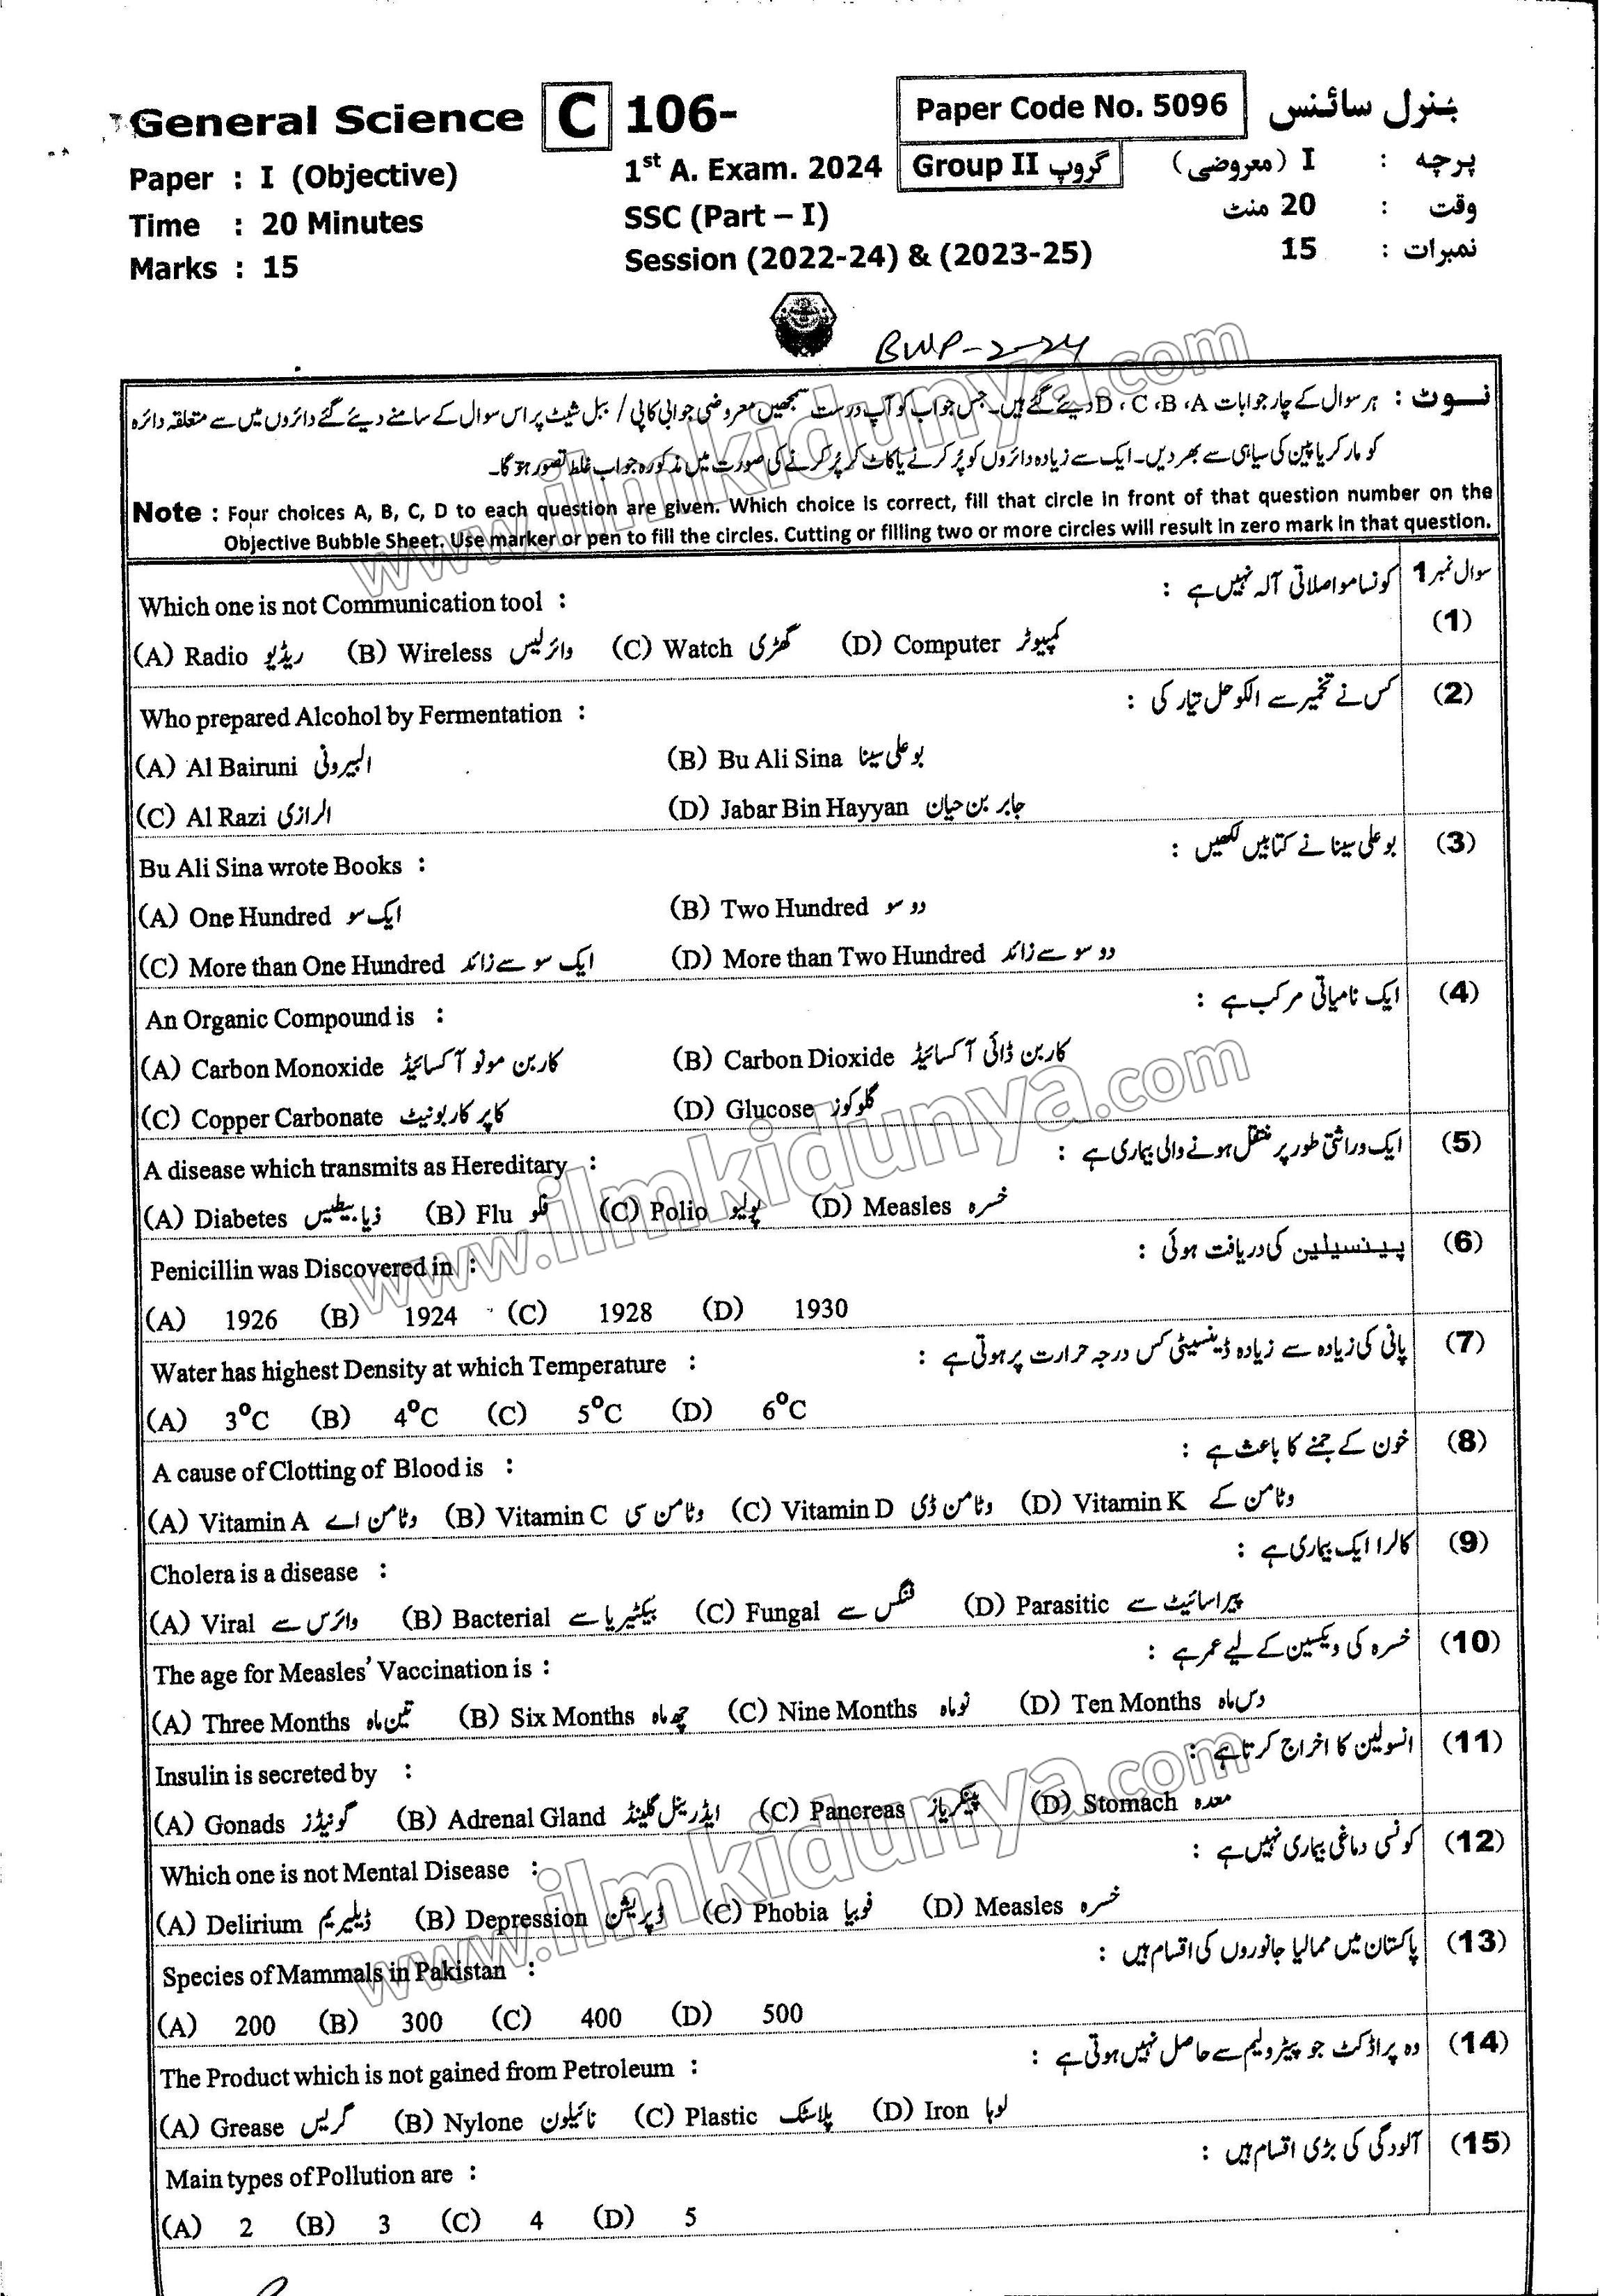 General Science C 106- Paper Code No. 5096 جنرل سائنس
Paper : I (Objective) 1st A. Exam. 2024 Group II گروپ پرچہ : I (معروضی)
Time : 20 Minutes SSC (Part – I) وقت : 20 منٹ
Marks : 15 Session (2022-24) & (2023-25) نمبرات : 15
BWP-2-24
نوٹ : ہر سوال کے چار جوابات A، B، C، D دیئے گئے ہیں۔ جس جواب کو آپ درست سمجھیں معروضی جوابی کاپی / ببل شیٹ پر اس سوال کے سامنے دیئے گئے دائروں میں سے متعلقہ دائرہ
کو مارکر یا پین کی سیاہی سے بھر دیں۔ ایک سے زیادہ دائروں کو پُر کرنے یا کاٹ کر پُر کرنے کی صورت میں مذکورہ جواب غلط تصور ہو گا۔
Note : Four choices A, B, C, D to each question are given. Which choice is correct, fill that circle in front of that question number on the
Objective Bubble Sheet. Use marker or pen to fill the circles. Cutting or filling two or more circles will result in zero mark in that question.
سوال نمبر 1 کونسا مواصلاتی آلہ نہیں ہے :
Which one is not Communication tool : (1)
(A) Radio ریڈیو (B) Wireless وائرلیس (C) Watch گھڑی (D) Computer کمپیوٹر
Who prepared Alcohol by Fermentation : کس نے تخمیر سے الکوحل تیار کی : (2)
(A) Al Bairuni البیرونی (B) Bu Ali Sina بو علی سینا
(C) Al Razi الرازی (D) Jabar Bin Hayyan جابر بن حیان
Bu Ali Sina wrote Books : بو علی سینا نے کتابیں لکھیں : (3)
(A) One Hundred ایک سو (B) Two Hundred دو سو
(C) More than One Hundred ایک سو سے زائد (D) More than Two Hundred دو سو سے زائد
An Organic Compound is : ایک نامیاتی مرکب ہے : (4)
(A) Carbon Monoxide کاربن مونو آکسائیڈ (B) Carbon Dioxide کاربن ڈائی آکسائیڈ
(C) Copper Carbonate کاپر کاربونیٹ (D) Glucose گلوکوز
A disease which transmits as Hereditary : ایک وراثتی طور پر منتقل ہونے والی بیماری ہے : (5)
(A) Diabetes ذیابیطیس (B) Flu فلو (C) Polio پولیو (D) Measles خسرہ
Penicillin was Discovered in : پینسیلین کی دریافت ہوئی : (6)
(A) 1926 (B) 1924 (C) 1928 (D) 1930
Water has highest Density at which Temperature : پانی کی زیادہ سے زیادہ ڈینسیٹی کس درجہ حرارت پر ہوتی ہے : (7)
(A) 3°C (B) 4°C (C) 5°C (D) 6°C
A cause of Clotting of Blood is : خون کے جمنے کا باعث ہے : (8)
(A) Vitamin A وٹامن اے (B) Vitamin C وٹامن سی (C) Vitamin D وٹامن ڈی (D) Vitamin K وٹامن کے
Cholera is a disease : کالرا ایک بیماری ہے : (9)
(A) Viral وائرس سے (B) Bacterial بیکٹیریا سے (C) Fungal فنگس سے (D) Parasitic پیراسائیٹ سے
The age for Measles' Vaccination is : خسرہ کی ویکسین کے لیے عمر ہے : (10)
(A) Three Months تین ماہ (B) Six Months چھ ماہ (C) Nine Months نو ماہ (D) Ten Months دس ماہ
Insulin is secreted by : انسولین کا اخراج کرتا ہے : (11)
(A) Gonads گونیڈز (B) Adrenal Gland ایڈرینل گلینڈ (C) Pancreas پینکریاز (D) Stomach معدہ
Which one is not Mental Disease : کونسی دماغی بیماری نہیں ہے : (12)
(A) Delirium ڈیلیریم (B) Depression ڈپریشن (C) Phobia فوبیا (D) Measles خسرہ
Species of Mammals in Pakistan : پاکستان میں ممالیا جانوروں کی اقسام ہیں : (13)
(A) 200 (B) 300 (C) 400 (D) 500
The Product which is not gained from Petroleum : وہ پراڈکٹ جو پیٹرولیم سے حاصل نہیں ہوتی ہے : (14)
(A) Grease گریس (B) Nylone نائیلون (C) Plastic پلاسٹک (D) Iron لوہا
Main types of Pollution are : آلودگی کی بڑی اقسام ہیں : (15)
(A) 2 (B) 3 (C) 4 (D) 5
www.ilmkidunya.com
www.ilmkidunya.com
www.ilmkidunya.com